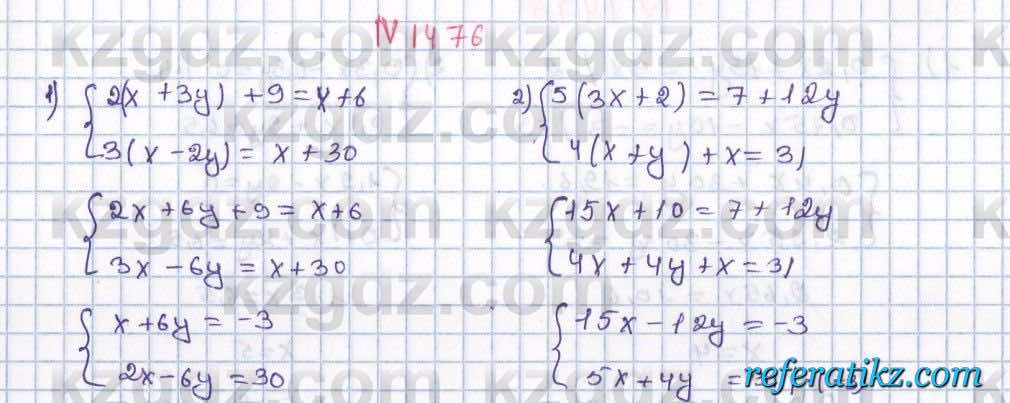 N 1476
1) { 2(x + 3y) + 9 = x + 6
3(x - 2y) = x + 30
{ 2x + 6y + 9 = x + 6
3x - 6y = x + 30
{ x + 6y = -3
2x - 6y = 30
2) { 5(3x + 2) = 7 + 12y
4(x + y) + x = 31
{ 15x + 10 = 7 + 12y
4x + 4y + x = 31
{ 15x - 12y = -3
5x + 4y =
kzgdz.com
kzgdz.com
kzgdz.com
referatikz.com